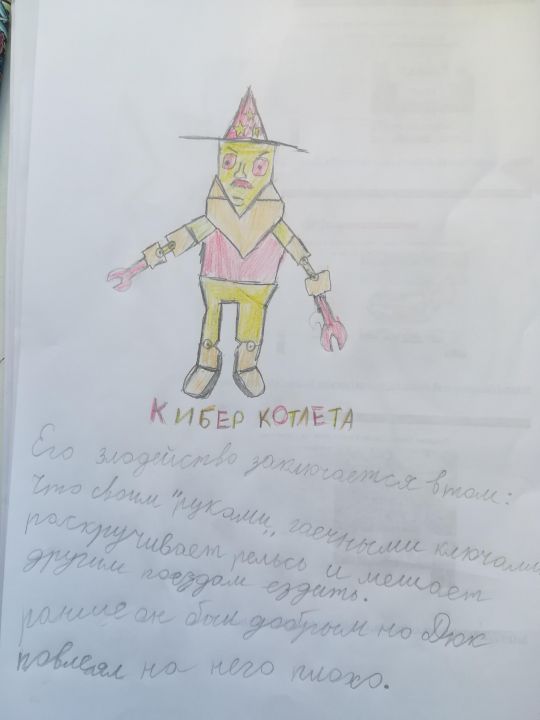 КИБЕР КОТЛЕТА
Его злодейство заключается в том:
Что своим "руками" гаечными ключами
раскручивает рельсы и мешает
другим поездам ездить.
раньше он был добрым но Дюк
повлеял на него плохо.